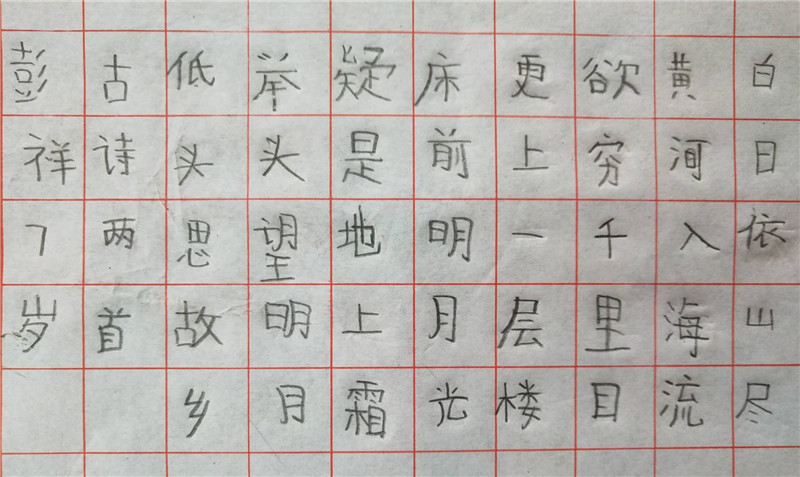 白日依山尽
黄河入海流
欲穷千里目
更上一层楼
床前明月光
疑是地上霜
举头望明月
低头思故乡
古诗两首
彭祥7岁